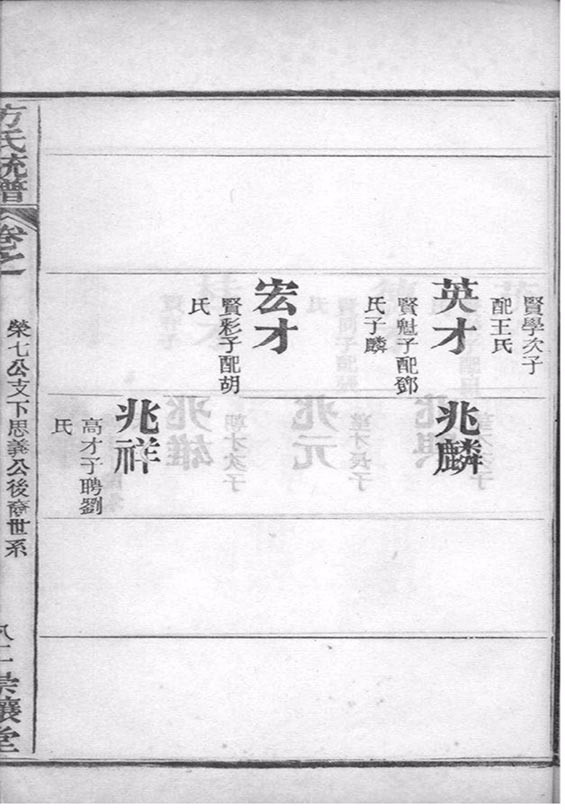 賢學次子
配王氏
英才
賢魁子配鄧
氏子麟
宏才
賢彩子配胡
氏
兆麟
兆祥
高才子聘劉
氏
方氏統譜
卷之一
榮七公支下思義公後裔世系